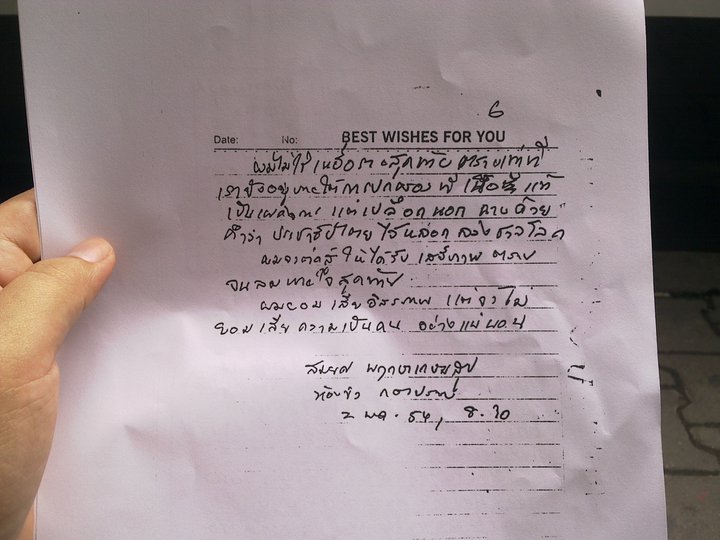 6
Date: No: BEST WISHES FOR YOU
ผมไม่ใช่เหยื่อรายสุดท้าย ตราบเท่าที่
เรายังอยู่ภายใต้การปกครอง ที่เนื้อแท้
เป็นเผด็จการ แต่เปลือกนอก ฉาบด้วย
คำว่า ประชาธิปไตย ไว้หลอกลวงชาวโลก
ผมจะต่อสู้ให้ได้รับ เสรีภาพ ตราบ
จนลมหายใจสุดท้าย
ผมยอมเสียอิสรภาพ แต่จะไม่
ยอมเสียความเป็นคน อย่างแน่นอน
สมยศ พฤกษาเกษมสุข
ห้องขัง กองปราบ
2 พค. 54, 8.20